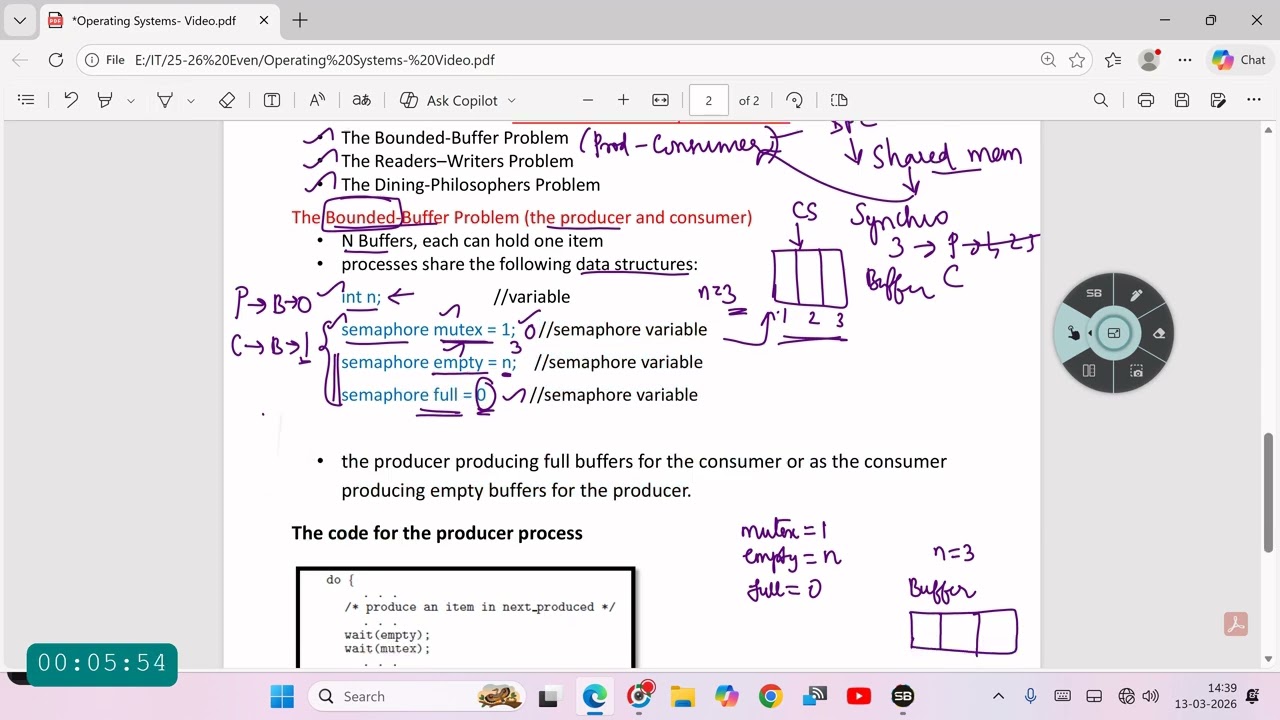 *Operating Systems- Video.pdf
File E:/IT/25-26%20Even/Operating%20Systems-%20Video.pdf
Chat
Ask Copilot
2 of 2
The Bounded-Buffer Problem (Prod - Consumer)
The Readers–Writers Problem
The Dining-Philosophers Problem
Shared mem
The Bounded-Buffer Problem (the producer and consumer)
CS Synchro
N Buffers, each can hold one item
3 → P → 1, 2 3
processes share the following data structures:
Buffer C
P → B → 0 int n; ← //variable n=3
semaphore mutex = 1; 0 //semaphore variable
1 2 3
C → B → 1
semaphore empty = n; 3 //semaphore variable
semaphore full = 0 //semaphore variable
the producer producing full buffers for the consumer or as the consumer
producing empty buffers for the producer.
The code for the producer process
mutex = 1
empty = n n=3
full = 0 Buffer
do {
. . .
/* produce an item in next_produced */
. . .
wait(empty);
wait(mutex);
. . .
SB
00:05:54
Search
SB
14:39
13-03-2026